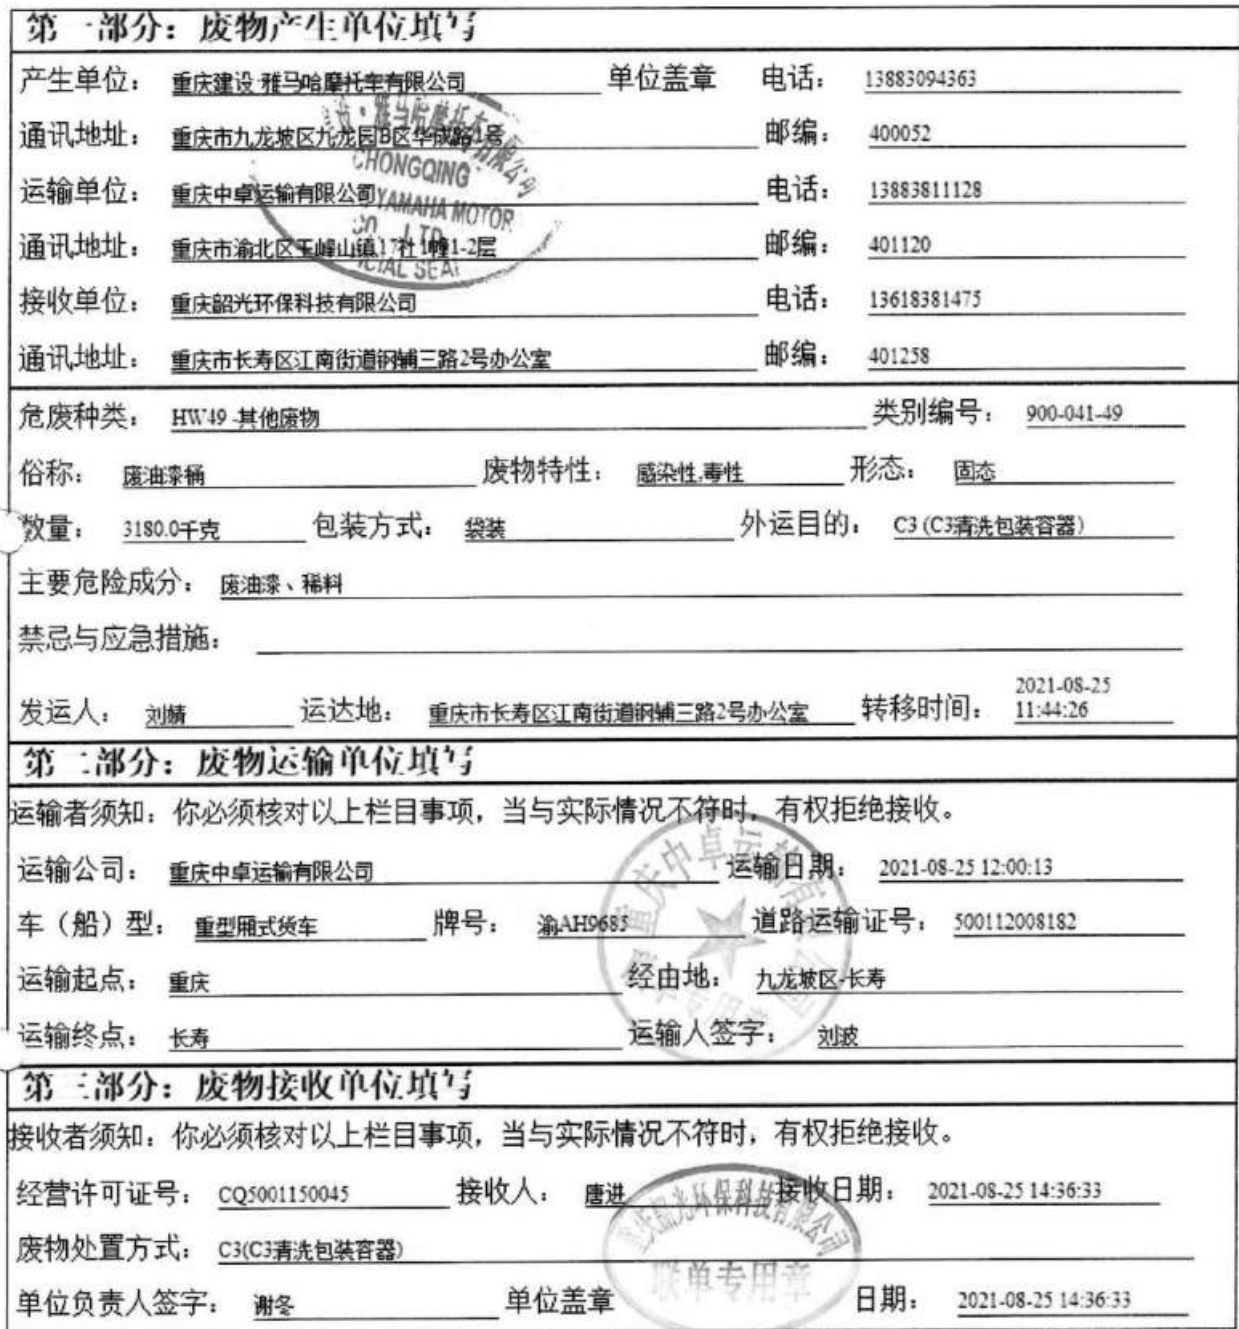 第一部分：废物产生单位填写
产生单位： 重庆建设·雅马哈摩托车有限公司 单位盖章 电话： 13883094363
通讯地址： 重庆市九龙坡区九龙园B区华成路1号 邮编： 400052
运输单位： 重庆中卓运输有限公司 电话： 13883811128
通讯地址： 重庆市渝北区玉峰山镇17社1幢1-2层 邮编： 401120
接收单位： 重庆韶光环保科技有限公司 电话： 13618381475
通讯地址： 重庆市长寿区江南街道钢辅三路2号办公室 邮编： 401258
CHONGQING
YAMAHA MOTOR
CO., LTD.
危废种类： HW49 -其他废物 类别编号： 900-041-49
俗称： 废油漆桶 废物特性： 感染性,毒性 形态： 固态
数量： 3180.0千克 包装方式： 袋装 外运目的： C3 (C3清洗包装容器)
主要危险成分： 废油漆、稀料
禁忌与应急措施：
发运人： 刘婧 运达地： 重庆市长寿区江南街道钢辅三路2号办公室 转移时间： 2021-08-25
11:44:26
第二部分：废物运输单位填写
运输者须知：你必须核对以上栏目事项，当与实际情况不符时，有权拒绝接收。
运输公司： 重庆中卓运输有限公司 运输日期： 2021-08-25 12:00:13
车（船）型： 重型厢式货车 牌号： 渝AH9685 道路运输证号： 500112008182
运输起点： 重庆 经由地： 九龙坡区-长寿
运输终点： 长寿 运输人签字： 刘波
重庆中卓运输有限公司
第三部分：废物接收单位填写
接收者须知：你必须核对以上栏目事项，当与实际情况不符时，有权拒绝接收。
经营许可证号： CQ5001150045 接收人： 唐进 接收日期： 2021-08-25 14:36:33
废物处置方式： C3(C3清洗包装容器)
单位负责人签字： 谢冬 单位盖章 日期： 2021-08-25 14:36:33
重庆韶光环保科技有限公司
联单专用章